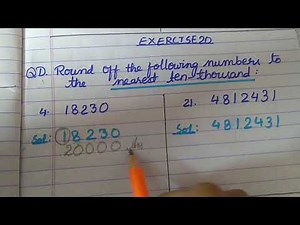 EXERCISE 20
QD. Round off the following numbers to
the nearest ten-thousand:
4. 18230
21. 4812431
Sol: 18230
Sol: 4812431
20000